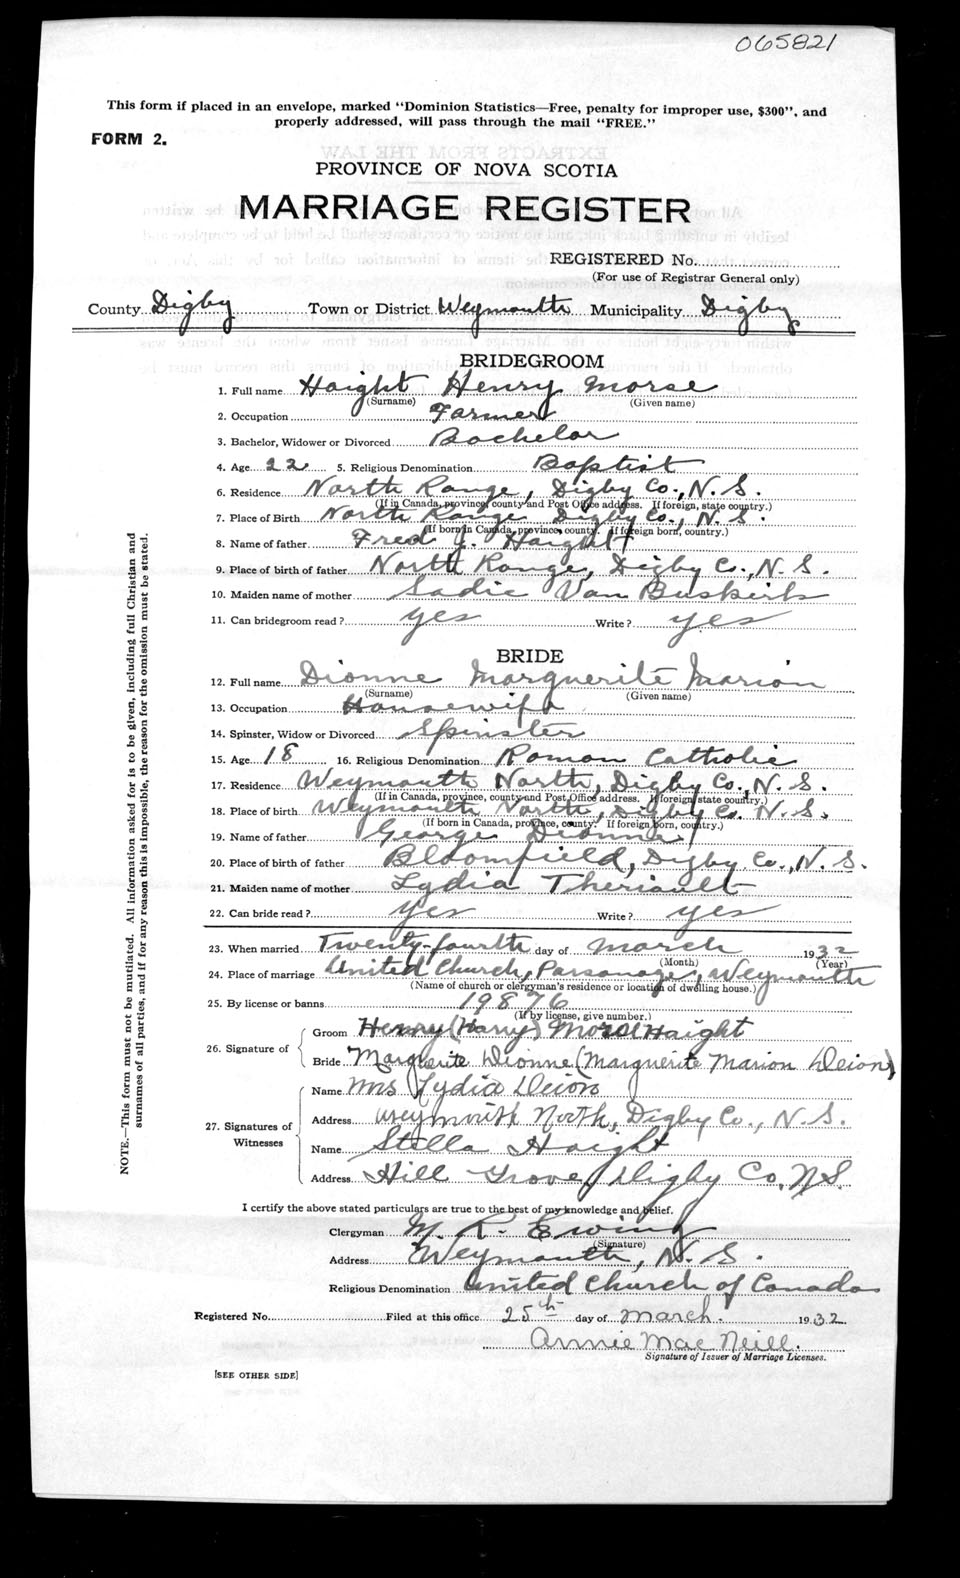 065821
This form if placed in an envelope, marked "Dominion Statistics—Free, penalty for improper use, $300", and
properly addressed, will pass through the mail "FREE."
FORM 2.
PROVINCE OF NOVA SCOTIA
MARRIAGE REGISTER
REGISTERED No.
(For use of Registrar General only)
County Digby Town or District Weymouth Municipality Digby
BRIDEGROOM
1. Full name Haight Henry Morse
(Surname) (Given name)
2. Occupation Farmer
3. Bachelor, Widower or Divorced Bachelor
4. Age 22 5. Religious Denomination Baptist
6. Residence North Range, Digby Co., N. S.
(If in Canada, province, county and Post Office address. If foreign, state country.)
7. Place of Birth North Range Digby Co., N. S.
(If born in Canada, province, county. If foreign born, country.)
8. Name of father Fred J. Haight
9. Place of birth of father North Range, Digby Co., N. S.
10. Maiden name of mother Sadie Van Buskirk
11. Can bridegroom read? yes Write? yes
BRIDE
12. Full name Dionne Marguerite Marion
(Surname) (Given name)
13. Occupation Housewife
14. Spinster, Widow or Divorced Spinster
15. Age 18 16. Religious Denomination Roman Catholic
17. Residence Weymouth North, Digby Co., N. S.
(If in Canada, province, county and Post Office address. If foreign state country.)
18. Place of birth Weymouth North, Digby Co. N. S.
(If born in Canada, province, county. If foreign born, country.)
19. Name of father George Dionne
20. Place of birth of father Bloomfield, Digby Co., N. S.
21. Maiden name of mother Lydia Theriault
22. Can bride read? yes Write? yes
23. When married Twenty-fourth day of March 1932
(Month) (Year)
24. Place of marriage United Church, Parsonage, Weymouth
(Name of church or clergyman's residence or location of dwelling house.)
25. By license or banns 19876
(If by license, give number.)
26. Signature of
Groom Henry (Harry) Morse Haight
Bride Marguerite Dionne (Marguerite Marion Deion)
27. Signatures of Witnesses
Name Mrs Lydia Deion
Address Weymouth North, Digby Co., N. S.
Name Stella Haight
Address Hill Grove, Digby Co, N.S.
I certify the above stated particulars are true to the best of my knowledge and belief.
Clergyman M. R. Ewing
(Signature)
Address Weymouth, N. S.
Religious Denomination United Church of Canada
Registered No. Filed at this office 25th day of March. 1932
Annie Mac Neill.
Signature of Issuer of Marriage Licenses.
[SEE OTHER SIDE]
NOTE.—This form must not be mutilated. All information asked for is to be given, including full Christian and
surnames of all parties, and if for any reason this is impossible, the reason for the omission must be stated.